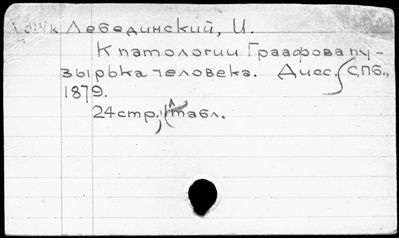 Лебединский, И.
К патологии Граафова пу-
зырька человека. Дисс. СПб.,
1879.
24 стр., 1 табл.